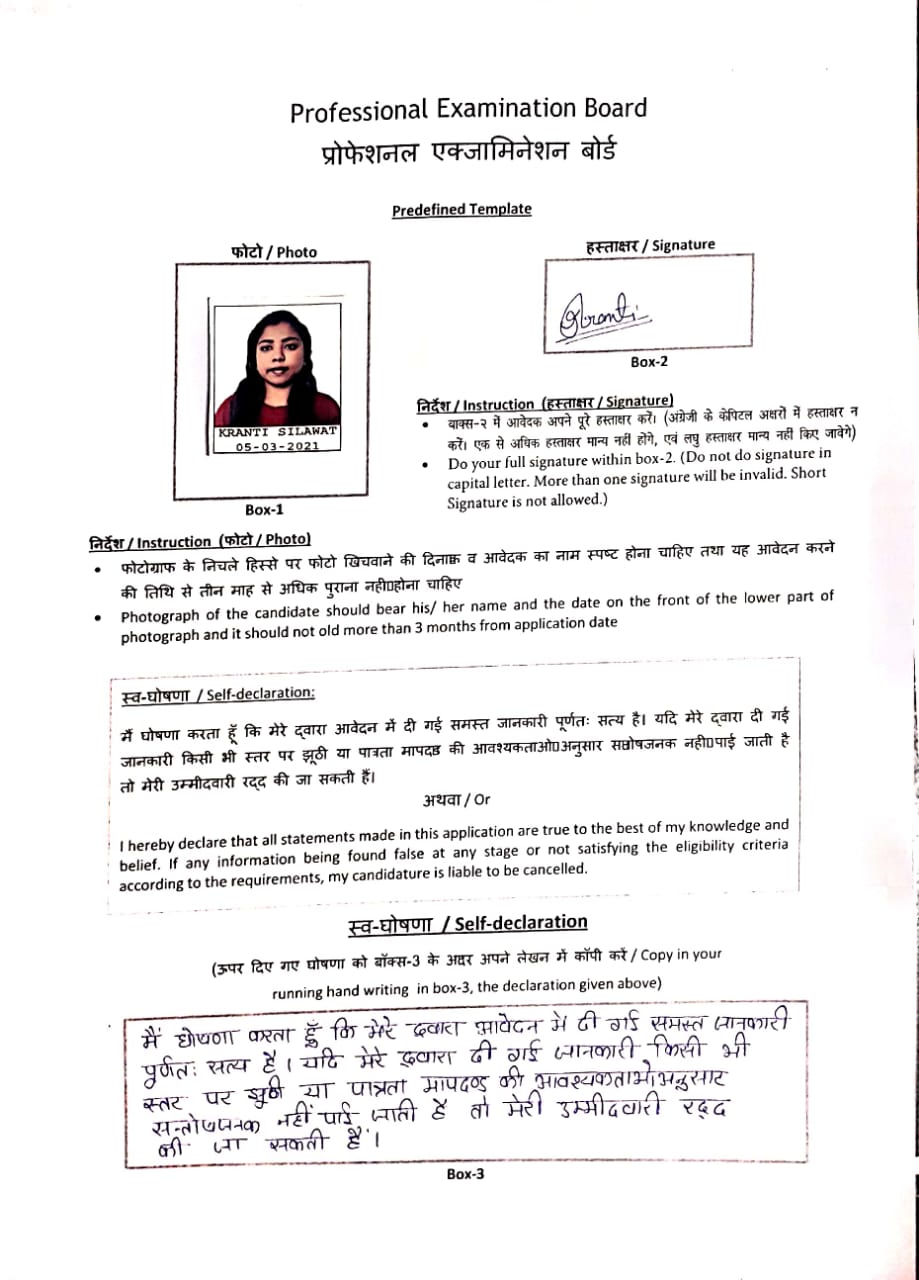 Professional Examination Board
प्रोफेशनल एक्जामिनेशन बोर्ड
Predefined Template
फोटो / Photo
KRANTI SILAWAT
05-03-2021
Box-1
हस्ताक्षर / Signature
Kranti
Box-2
निर्देश / Instruction (हस्ताक्षर / Signature)
• बाक्स-२ में आवेदक अपने पूरे हस्ताक्षर करें। (अंग्रेजी के केपिटल अक्षरों में हस्ताक्षर न
करें। एक से अधिक हस्ताक्षर मान्य नहीं होंगे, एवं लघु हस्ताक्षर मान्य नहीं किए जावेगे)
• Do your full signature within box-2. (Do not do signature in
capital letter. More than one signature will be invalid. Short
Signature is not allowed.)
निर्देश / Instruction (फोटो / Photo)
• फोटोग्राफ के निचले हिस्से पर फोटो खिचवाने की दिनाक व आवेदक का नाम स्पष्ट होना चाहिए तथा यह आवेदन करने
की तिथि से तीन माह से अधिक पुराना नही▯होना चाहिए
• Photograph of the candidate should bear his/ her name and the date on the front of the lower part of
photograph and it should not old more than 3 months from application date
स्व-घोषणा / Self-declaration:
मैं घोषणा करता हूँ कि मेरे द्वारा आवेदन में दी गई समस्त जानकारी पूर्णतः सत्य है। यदि मेरे द्वारा दी गई
जानकारी किसी भी स्तर पर झूठी या पात्रता मापदण्ड की आवश्यकताओ▯अनुसार सतोषजनक नही▯पाई जाती है
तो मेरी उम्मीदवारी रद्द की जा सकती हैं।
अथवा / Or
I hereby declare that all statements made in this application are true to the best of my knowledge and
belief. If any information being found false at any stage or not satisfying the eligibility criteria
according to the requirements, my candidature is liable to be cancelled.
स्व-घोषणा / Self-declaration
(ऊपर दिए गए घोषणा को बॉक्स-3 के अदर अपने लेखन में कॉपी करें / Copy in your
running hand writing in box-3, the declaration given above)
मैं घोषणा करता हूँ कि मेरे द्वारा आवेदन में दी गई समस्त जानकारी
पूर्णतः सत्य है। यदि मेरे द्वारा दी गई जानकारी किसी भी
स्तर पर झुठी या पात्रता मापदण्ड की आवश्यकताओंअनुसार
सन्तोषजनक नहीं पाई जाती है तो मेरी उम्मीदवारी रद्द
की जा सकती हैं।
Box-3